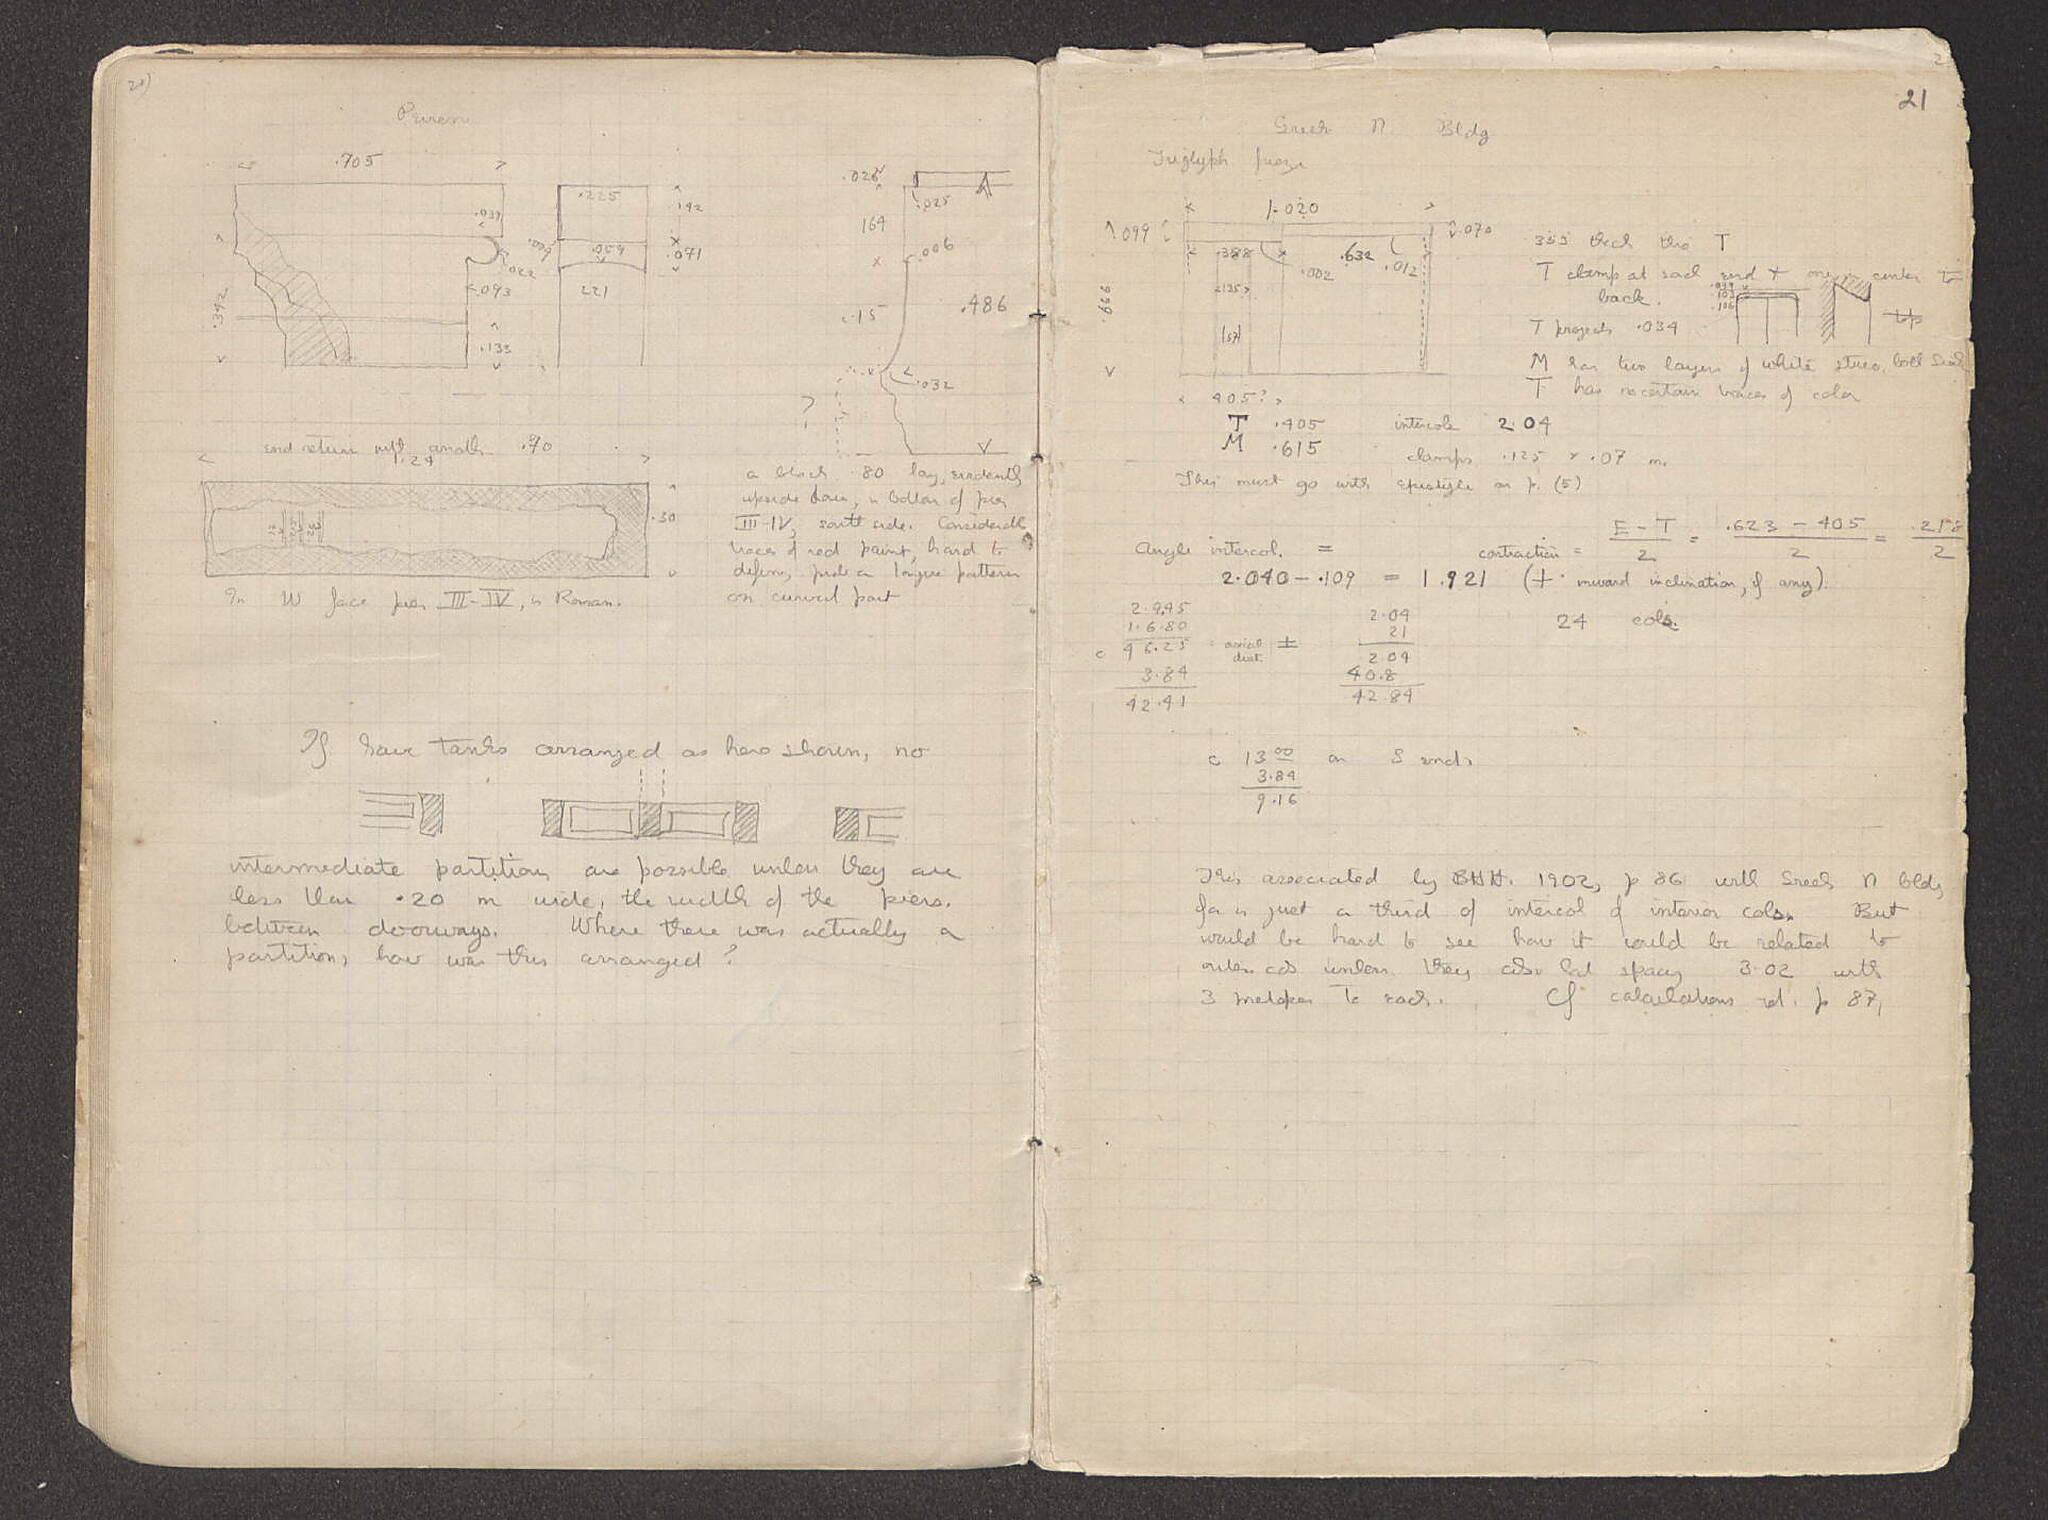 Peiren
.705
.039
.022
.093
.342
.133
.225
.142
.059
.071
.221
.026
.025
164
.006
.15
.486
.032
?
end return with smaller .90
1.24
.30
In W face pier III-IV, is Roman.
a block .80 long, evidently
upside down, in bottom of pier
III-IV, south side. Considerable
traces of red paint, hard to
define, prob a tongue pattern
on curved part
If have tanks arranged as here shown, no
intermediate partitions are possible unless they are
less than .20 m wide, the width of the piers.
between doorways. Where there was actually a
partition, how was this arranged?
21
Greek N. Bldg
Triglyph frieze
1.020
.099
.070
.388
.632
.002
.012
.669
405?
333 thick thro T
T clamp at each end + one in center to
back.
T projects .034
top
M has two layers of white stucco, both
T has no certain traces of color
T .405 intercol 2.04
M .615 clamps .125 × .07 m.
This must go with epistyle on p. (5)
Angle intercol. = contraction = E - T / 2 = .623 - 405 / 2 = .218 / 2
2.040 - .109 = 1.921 (+ inward inclination, if any).
24 cols.
2.945
1.6.80
c 46.25 = axial dist. ±
3.84
42.41
2.04
21
2.04
40.8
42.84
c 13.00 on S end.
3.84
9.16
This associated by BHH. 1902, p 86 with Greek N bldg,
for is just a third of intercol of interior cols. But
would be hard to see how it could be related to
outer cols unless they also had spacing 3.02 with
3 metopes to each. Cf calculations p 87,